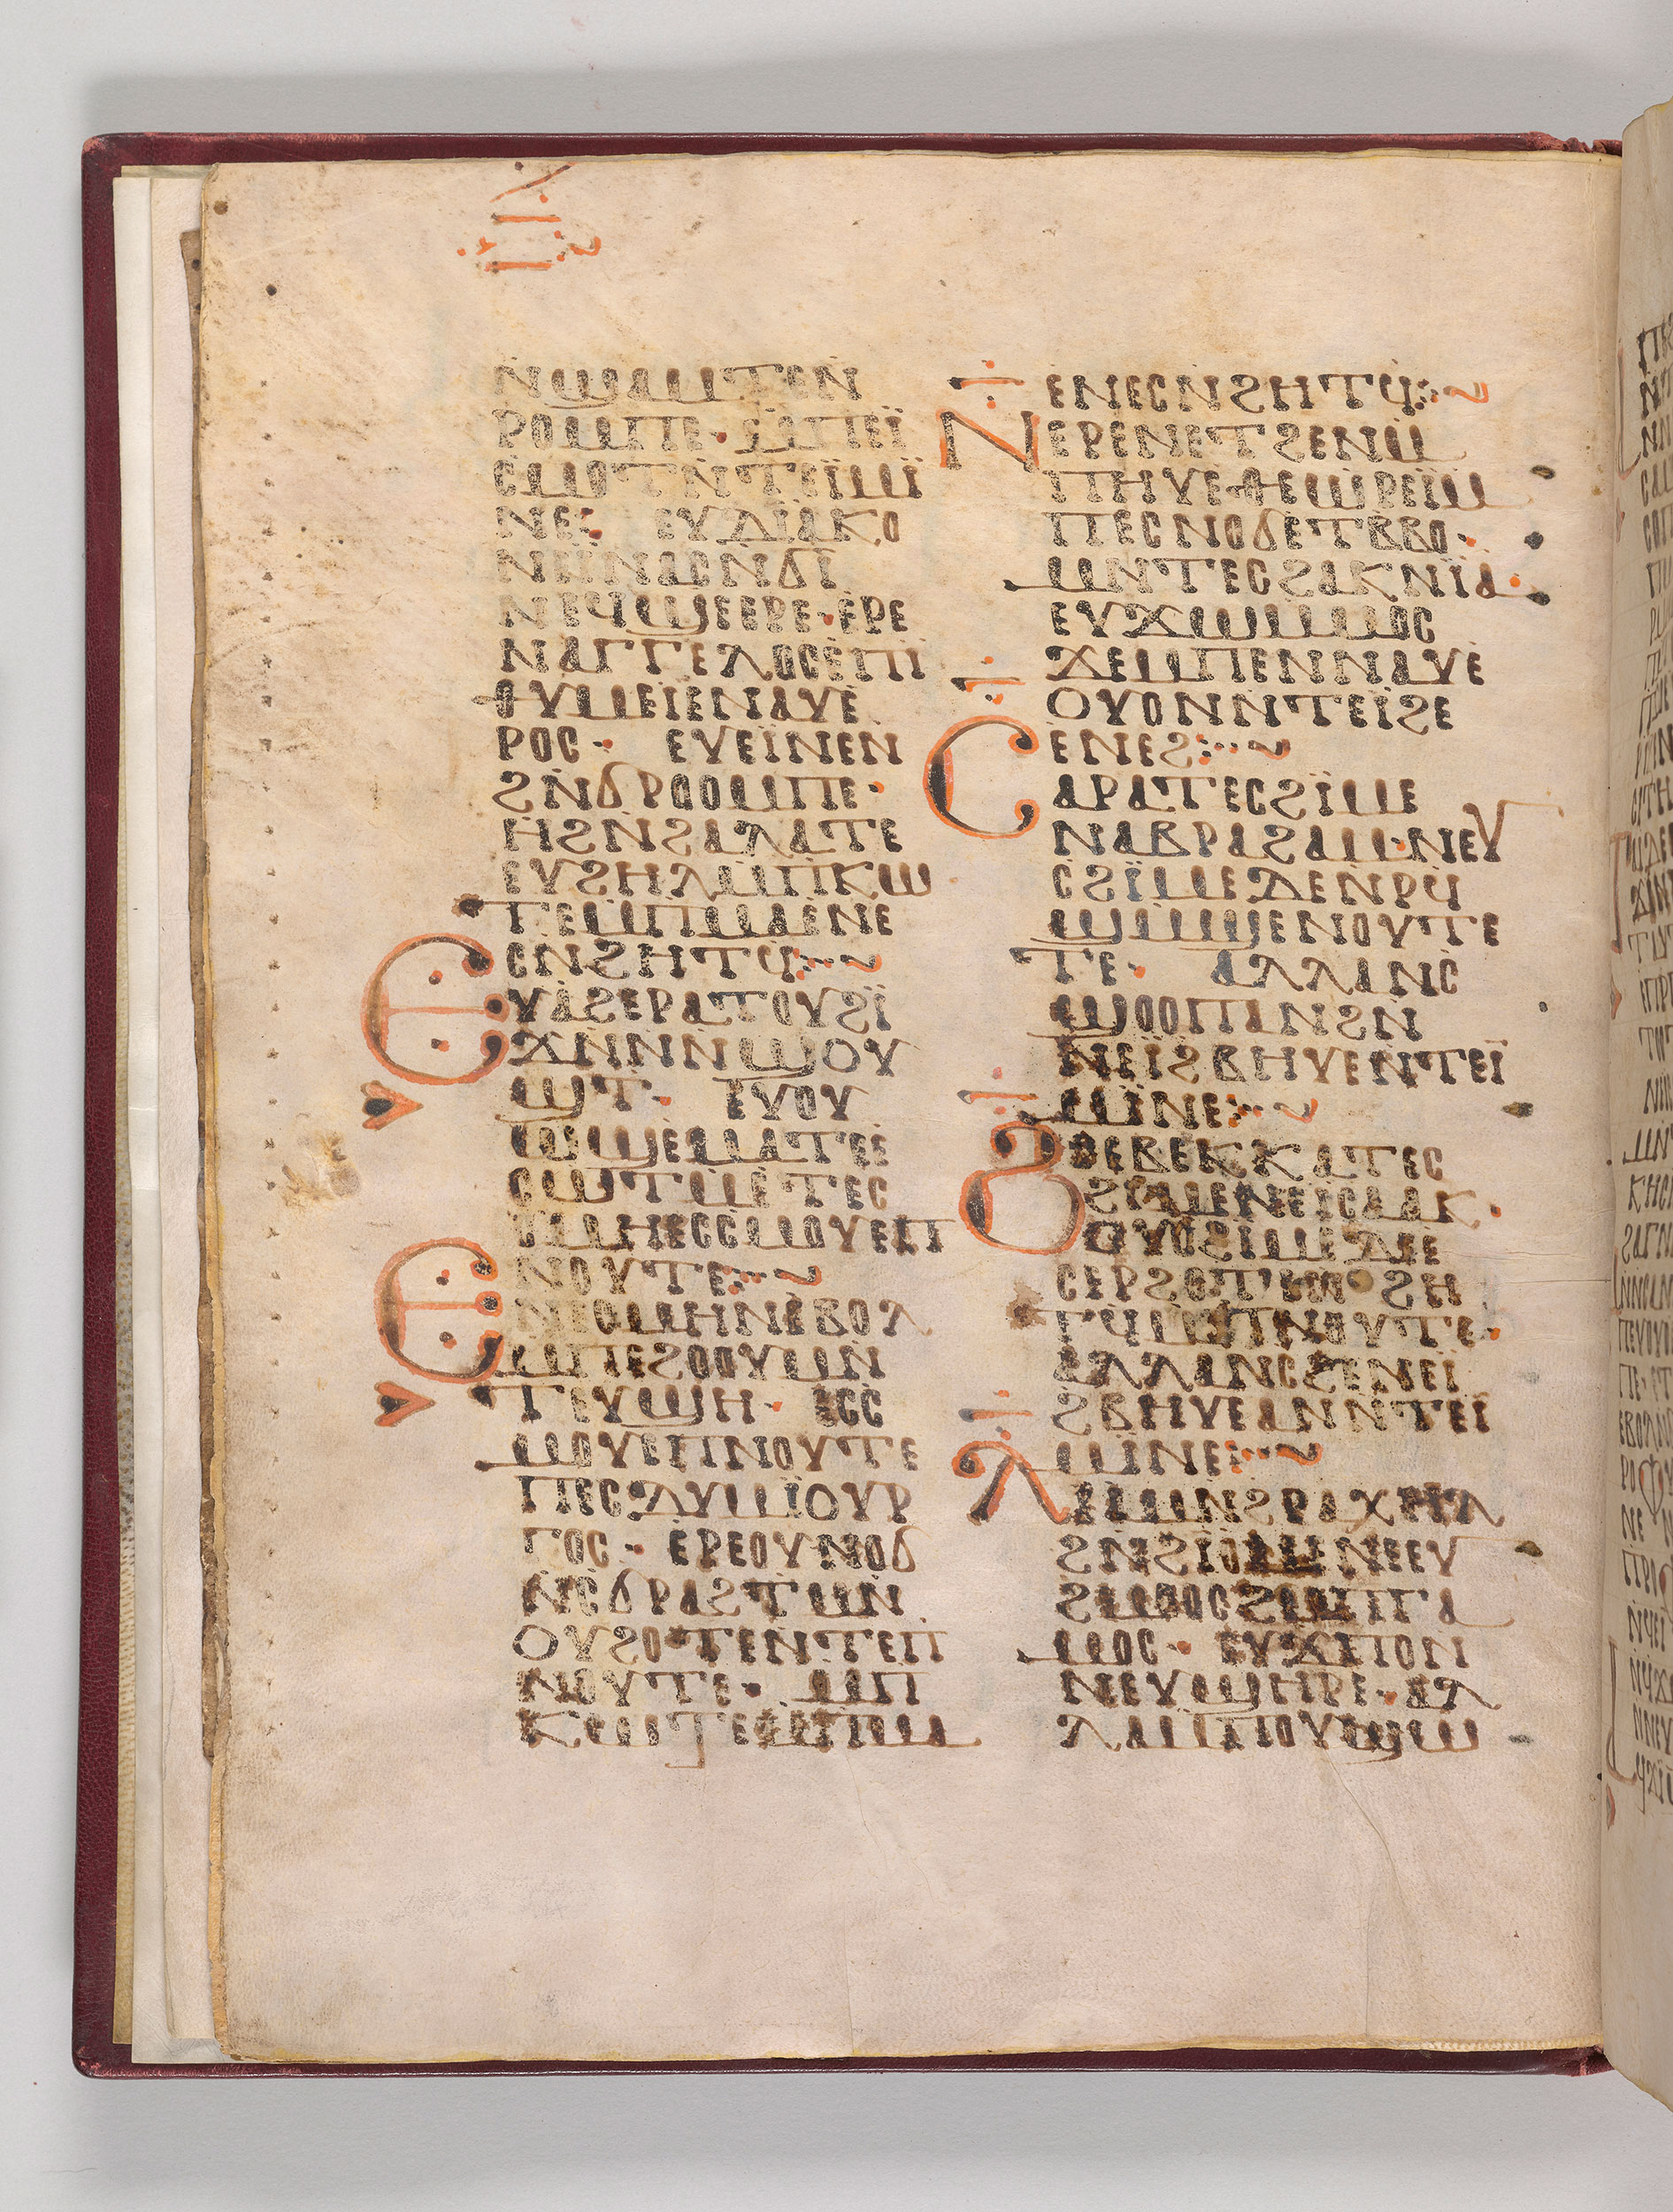 ⲛϣⲟⲙⲧⲉⲛ
ⲣⲟⲙⲡⲉ· ϩⲙⲡⲉⲓ̈
ⲥⲙⲟⲧⲛⲧⲉⲓ̈ⲙⲓ̈
ⲛⲉ: ⲉⲩⲇⲓⲁⲕⲟ
ⲛⲉⲓ̈ⲛⲁⲥⲛϭⲓ
ⲛⲉϥϣⲉⲉⲣⲉ·ⲉⲣⲉ
ⲛⲁⲅⲅⲉⲗⲟⲥⲉⲡⲓ
ⲑⲩⲙⲉⲓⲉⲛⲁⲩⲉ
ⲣⲟⲥ· ⲉⲩⲉⲓ̈ⲛⲉⲛ
ϩⲛϭⲣⲟⲟⲙⲡⲉ·
ⲏϩⲛϩⲁⲗⲁⲧⲉ
ⲉⲩϩⲏⲗⲙⲡⲕⲱ
ⲧⲉⲙⲡⲙⲁⲉⲛⲉ
ⲥⲛϩⲏⲧϥ:~
ⲉⲩⲁϩⲉⲣⲁⲧⲟⲩϩⲓ̈
ϫⲛⲛⲛϣⲟⲩ
ϣⲧ· ⲉⲩⲟⲩ
ⲱϣⲉⲙⲁⲧⲉⲉ
ⲥⲱⲧⲙⲉⲧⲉⲥ
ⲥⲙⲏⲉⲥⲥⲙⲟⲩⲉⲡ
ⲛⲟⲩⲧⲉ:~
ⲉⲛⲉⲥⲙⲏⲛⲉⲃⲟⲗ
ⲙⲡⲉϩⲟⲟⲩⲙⲛ
ⲧⲉⲩϣⲏ· ⲉⲥⲥ
ⲙⲟⲩⲉⲡⲛⲟⲩⲧⲉ
ⲡⲉⲥⲇⲩⲙⲓ̈ⲟⲩⲣ
ⲅⲟⲥ· ⲉⲣⲉⲟⲩⲛⲟϭ
ⲛⲥϭⲣⲁϩⲧⲙⲛ
ⲟⲩϩⲟⲧⲉⲛⲧⲉⲡ
ⲛⲟⲩⲧⲉ· ⲙⲡ
ⲕⲱⲧⲉⲙⲡⲙⲁ
ⲉⲛⲉⲥⲛϩⲏⲧϥ:~
ⲛⲉⲣⲉⲛⲉⲧϩⲉⲛⲙ
ⲡⲏⲩⲉⲑⲉⲱⲣⲉⲓ̈ⲙ
ⲡⲉⲥⲛⲟϭⲉⲧⲃⲃⲟ·
ⲙⲛⲧⲉⲥϩⲁⲕⲛⲓ̈ⲁ·
ⲉⲩϫⲱⲙⲙⲟⲥ
ϫⲉⲙⲡⲉⲛⲛⲁⲩⲉ
ⲟⲩⲟⲛⲛⲧⲉⲓ̈ϩⲉ
ⲉⲛⲉϩ:~
ⲥⲁⲣⲁⲧⲉⲥϩⲓ̈ⲙⲉ
ⲛⲁⲃⲣⲁϩⲁⲙ·ⲛⲉⲩ
ⲥϩⲓ̈ⲙⲉⲇⲉⲛⲣϥ
ϣⲙϣⲉⲛⲟⲩⲧⲉ
ⲧⲉ· ⲁⲗⲗⲁⲛⲥ
ϣⲟⲟⲡⲁⲛϩⲛ
ⲛⲉⲓ̈ϩⲃⲏⲩⲉⲛⲧⲉⲓ̈
ⲙⲓ̈ⲛⲉ:~
ϩⲣⲉⲃⲉⲕⲕⲁⲧⲉⲥ
ϩⲓⲙⲉⲛⲉⲓ̈ⲥⲁⲁⲕ·
ⲟⲩⲥϩⲓⲙⲉⲇⲉⲉ
ⲥⲉⲣϩⲟⲧⲉ ϩⲏ
ⲧϥⲙⲡⲛⲟⲩⲧⲉ·
ⲁⲗⲗⲁⲛⲥϩⲉⲛⲉⲓ̈
ϩⲃⲏⲩⲉⲁⲛⲛⲧⲉⲓ̈
ⲙⲓ̈ⲛⲉ:~
ⲗⲓⲁⲙⲛϩⲣⲁⲭⲏⲗ
ϩⲛϩⲓ̈ⲟⲙⲉⲛⲉⲉⲩ
ϩⲙⲡⲟⲥϩⲙⲡⲅⲁ
ⲙⲟⲥ· ⲉⲩϫⲡⲟⲛ
ⲛⲉⲩϣⲏⲣⲉ·ⲁⲗ
ⲗⲁⲙⲡⲟⲩϣⲱ